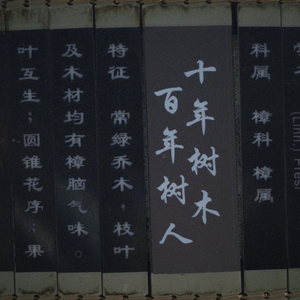 科属 樟科 樟属
十年树木
百年树人
特征 常绿乔木，枝叶
及木材均有樟脑气味。
叶互生，圆锥花序；果